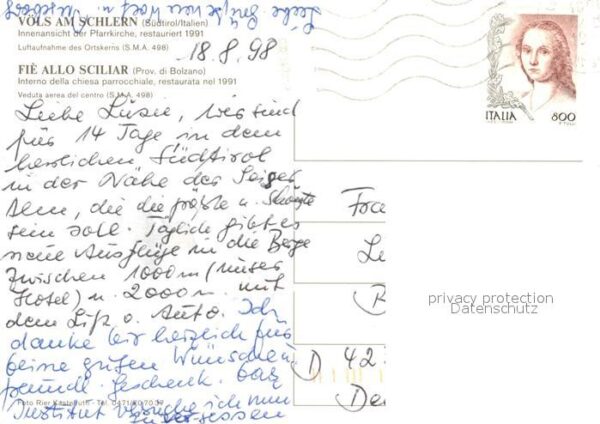 VÖLS AM SCHLERN (Südtirol/Italien)
Innenansicht der Pfarrkirche, restauriert 1991
Luftaufnahme des Ortskerns (S.M.A. 498)
18.8.98
FIÈ ALLO SCILIAR (Prov. di Bolzano)
Interno della chiesa parrocchiale, restaurata nel 1991
Veduta aerea del centro (S.M.A. 498)
Liebe Lüsie, wir sind
für 14 Tage in dem
herrlichen Südtirol
in der Nähe der Seiser
Alm, die die größte u. schönste
sein soll. Täglich gibt es
neue Ausflüge in die Berge
zwischen 1000 m (unser
Hotel) u. 2000 m mit
dem Lift o. Auto. Ich
danke Dir herzlich für
Deine guten Wünsche u.
freundl. Geschenk. Das
Institut versuche ich nun
zu vergessen
Liebe Grüße von
ITALIA 800
Fra
Le
D 42
De
Foto Rier Kastelruth - Tel. 0471/
privacy protection
Datenschutz